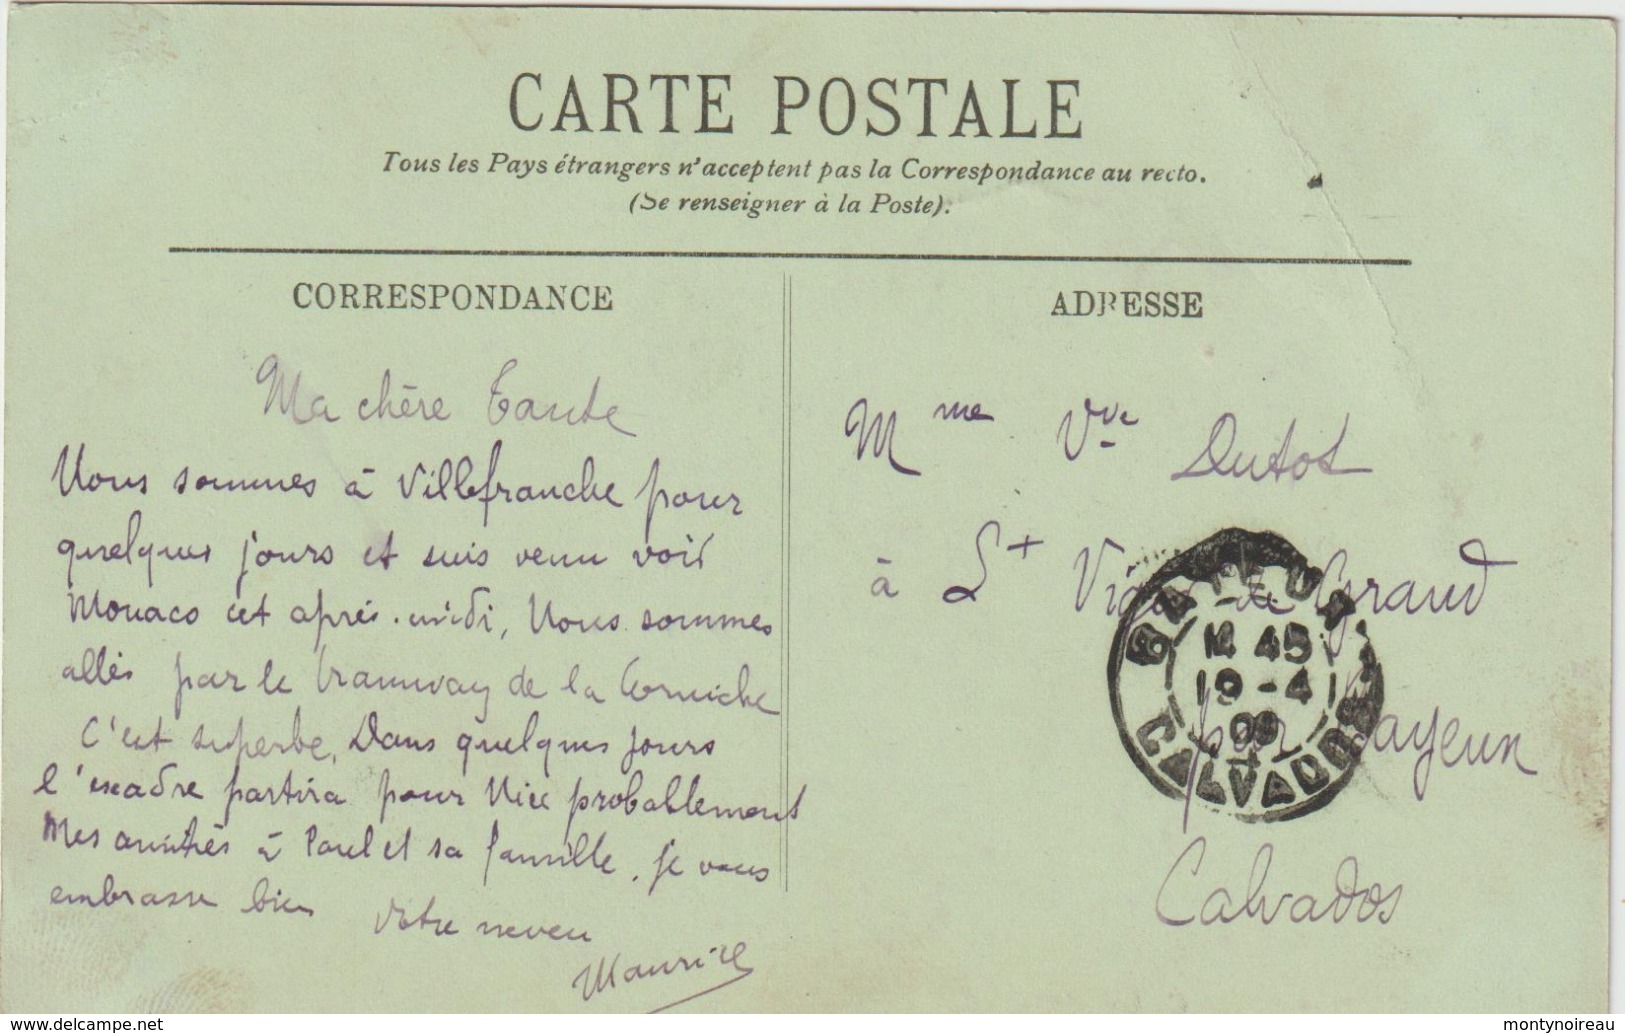 CARTE POSTALE
Tous les Pays étrangers n'acceptent pas la Correspondance au recto.
(Se renseigner à la Poste).
CORRESPONDANCE
Ma chère Tante
Nous sommes à Villefranche pour
quelques jours et suis venu voir
Monaco cet après-midi, Nous sommes
allés par le tramway de la Corniche
C'est superbe. Dans quelques jours
l'escadre partira pour Nice probablement
Mes amitiés à Paul et sa famille. je vous
embrasse bien
Votre neveu
Maurice
ADRESSE
Mme Vve Dutot
à St Vigor-le-Grand
par Bayeux
Calvados
BAYEUX
12 45
19-4
09
CALVADOS
www.delcampe.net
montynoireau